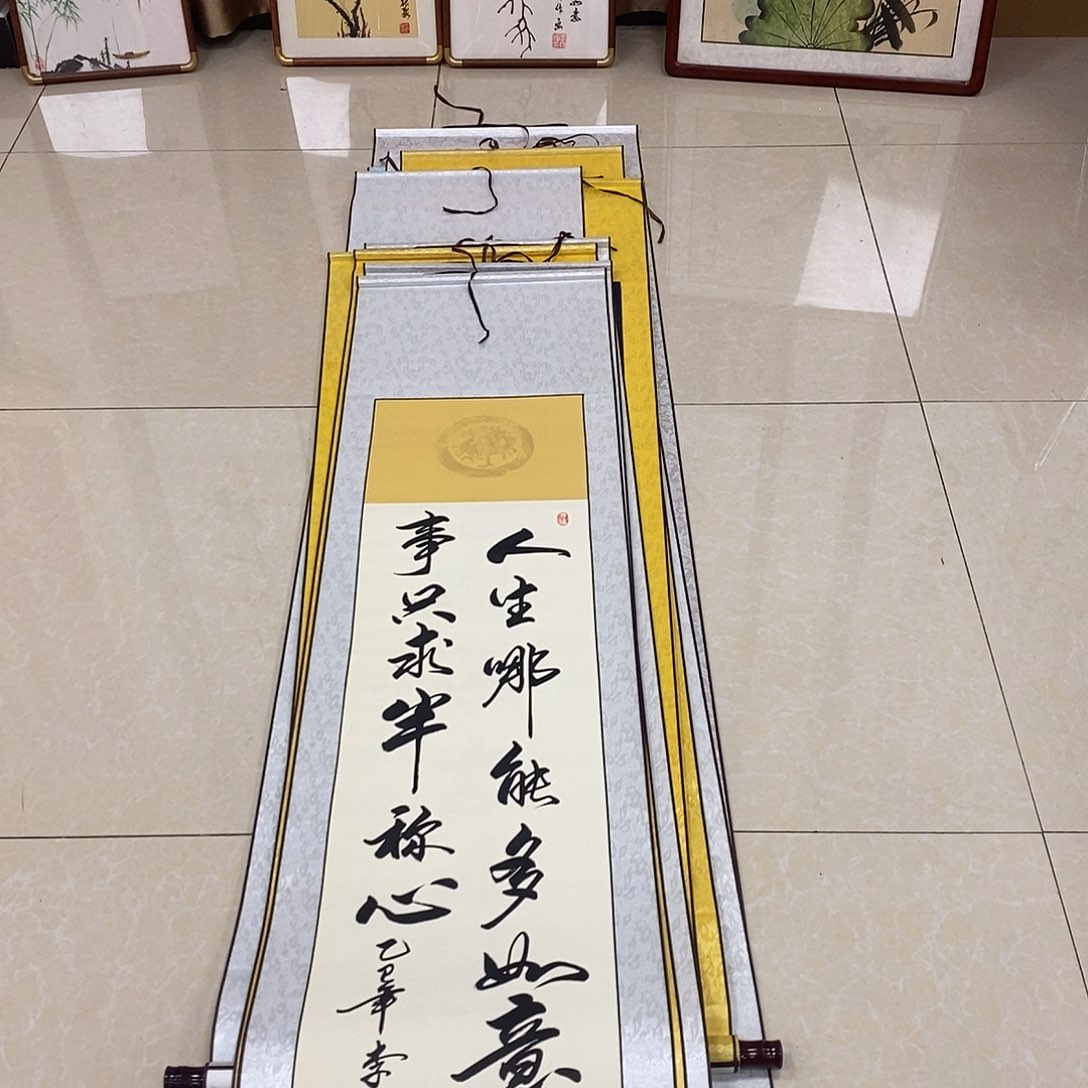 人生哪能多如意
事只求半称心
乙巳年 李